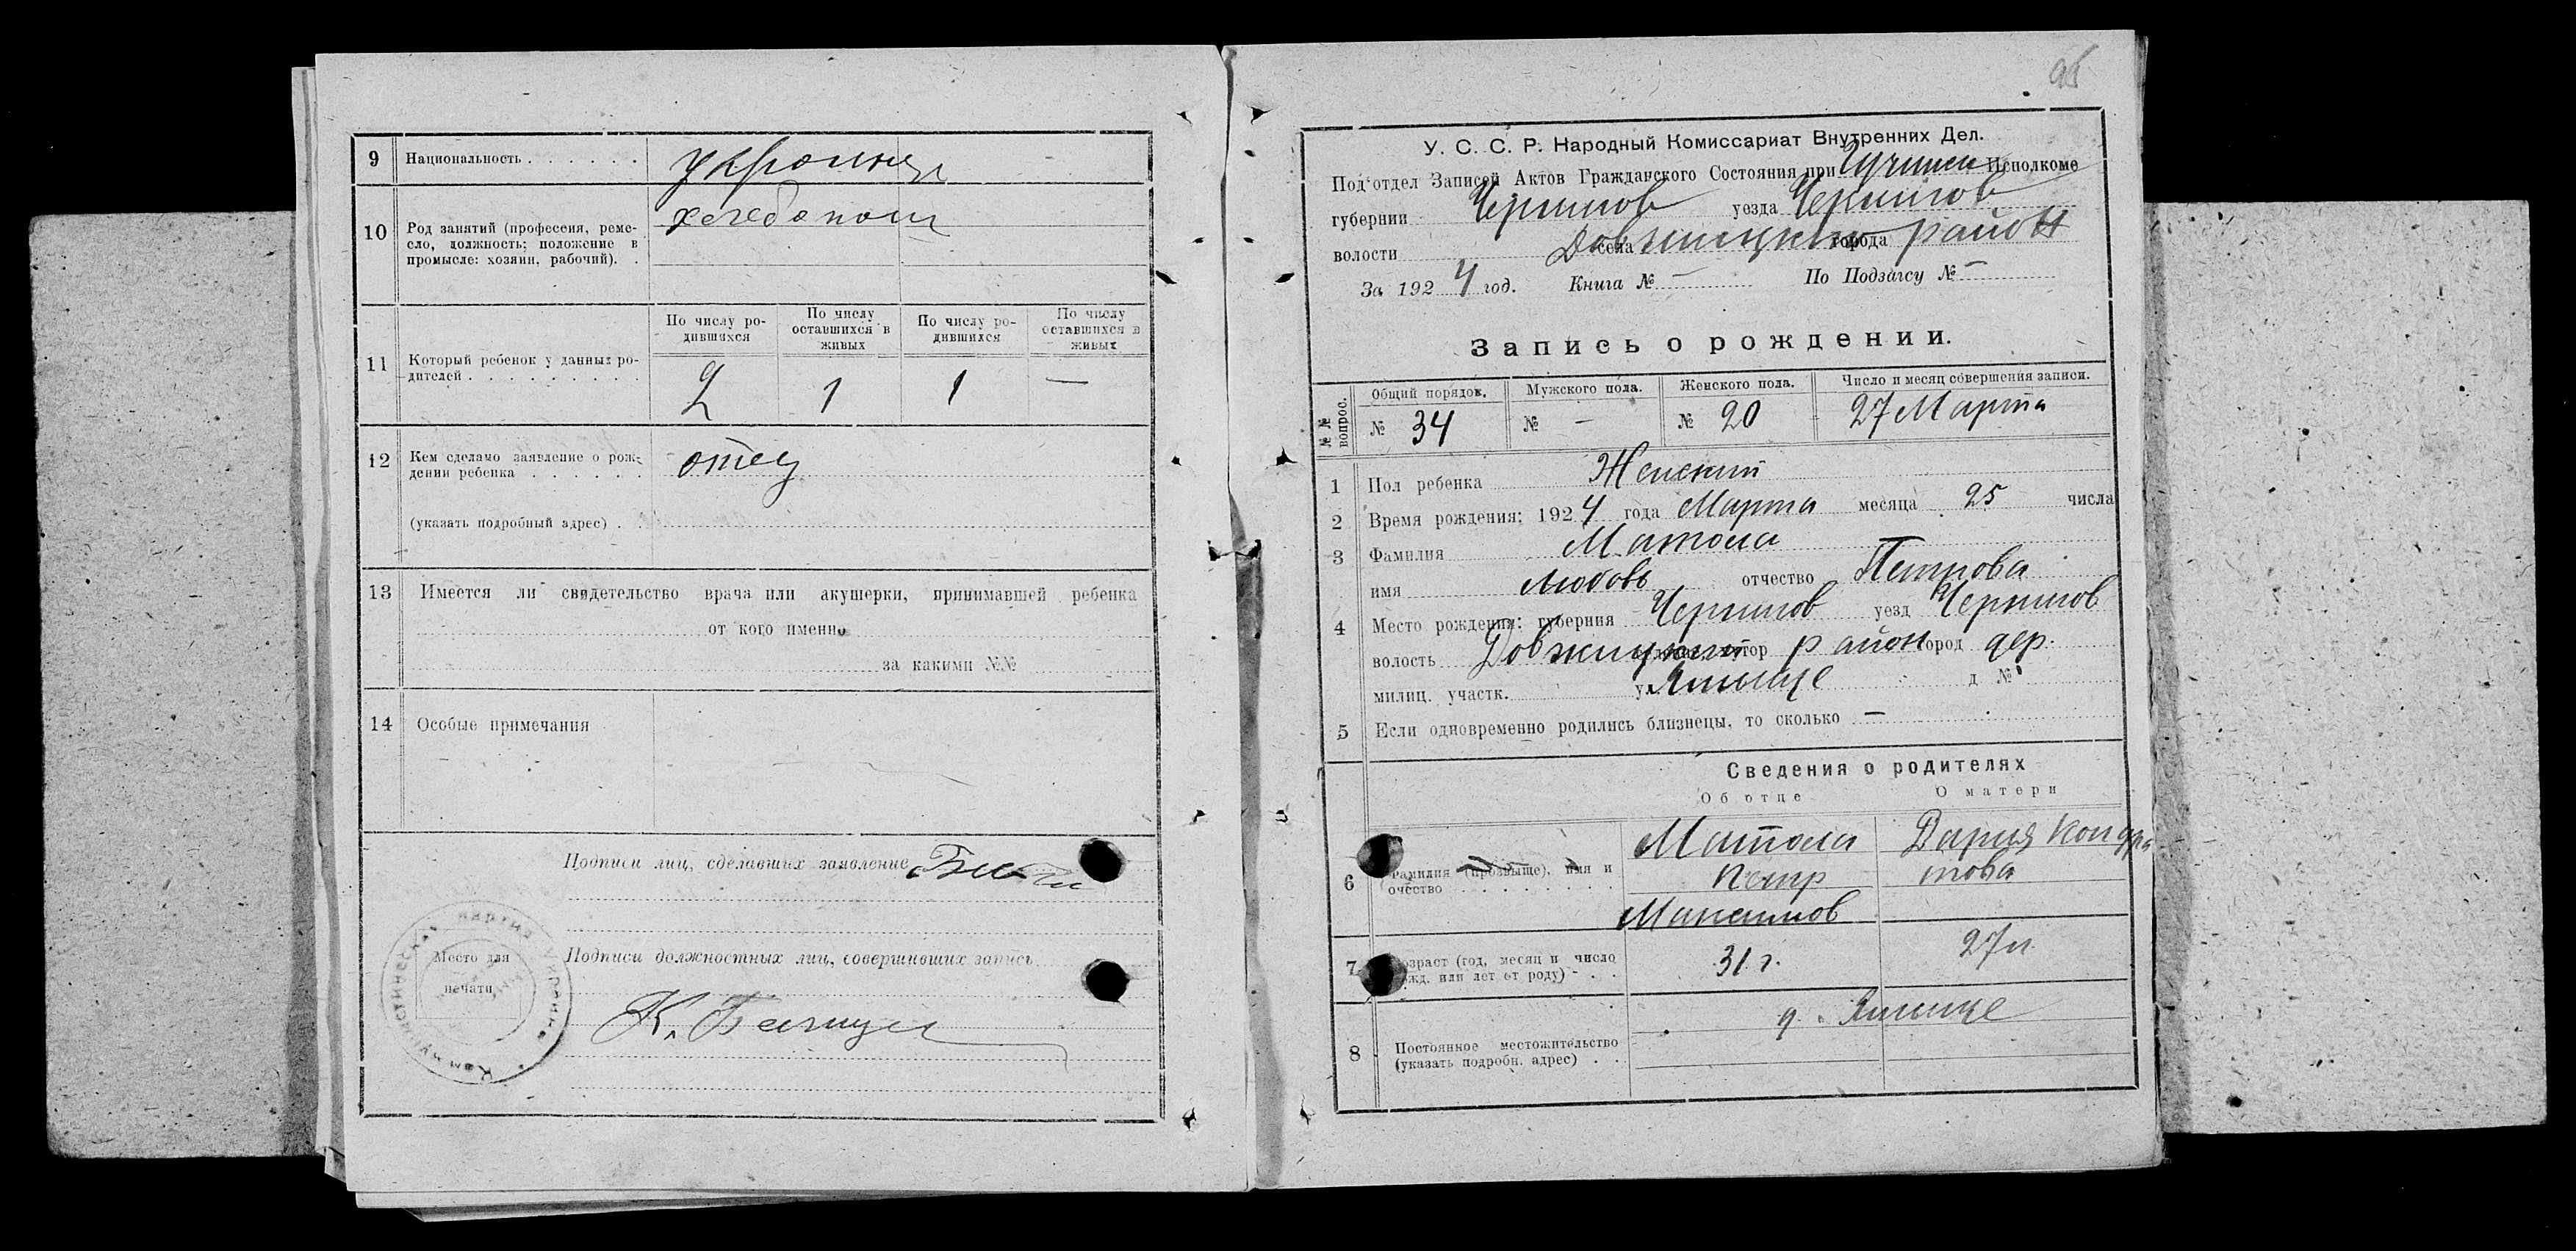 9 Национальность . . . . . .
10 Род занятий (профессия, реме-
сло, должность; положение в
промысле: хозяин, рабочий). .
По числу ро-
дившихся
По числу
оставшихся в
живых
По числу ро-
дившихся
По числу
оставшихся в
живых
11 Который ребенок у данных ро-
дителей . . . . . . . . .
2 1 1 —
12 Кем сделано заявление о рож-
дении ребенка . . . . . . отец
(указать подробный адрес) . .
13 Имеется ли свидетельство врача или акушерки, принимавшей ребенка
от кого именно
за какими №№
14 Особые примечания
Подписи лиц, сделавших заявление
Место для
печати
Подписи должностных лиц, совершивших запись
К.
95
У. С. С. Р. Народный Комиссариат Внутренних Дел.
Под'отдел Записей Актов Гражданского Состояния при Исполкоме
губернии Чернигов уезда Чернигов
волости села города район
За 1924 год. Книга № — По Подзагсу № —
Запись о рождении.
№ №
вопрос.
Общий порядок. Мужского пола. Женского пола. Число и месяц совершения записи.
№ 34 № — № 20 27 Марта
1 Пол ребенка Женский
2 Время рождения: 1924 года Марта месяца 25 числа
3 Фамилия Матола
имя Любовь отчество Петрова
4 Место рождения: губерния Чернигов уезд Чернигов
волость Довжицкий хутор район город дер.
милиц. участк. ул. д №
5 Если одновременно родились близнецы, то сколько —
Сведения о родителях
Об отце О матери
6 Фамилия (прозвыще), имя и
очество . . . . . . . . .
Матола
Петр
Максимов
Дария Кондра
това
7 Возраст (год, месяц и число
рожд. или лет от роду) - . .
31 г. 27 л.
8 Постоянное местожительство
(указать подробн. адрес) . .